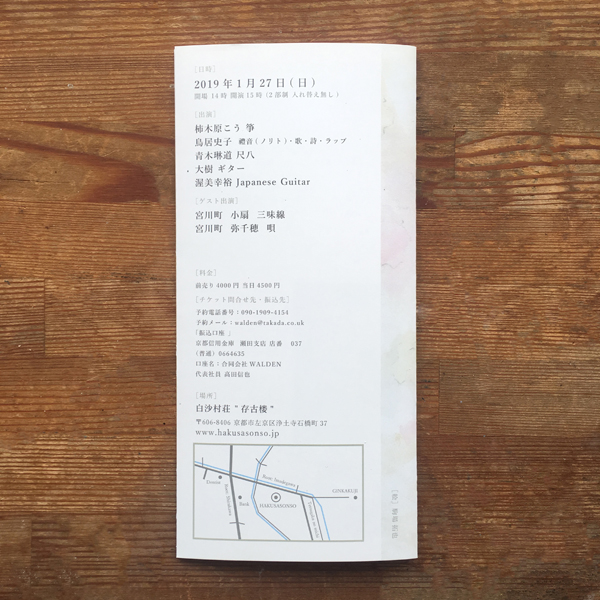 [日時]
2019年1月27日(日)
開場 14時 開演15時(2部制 入れ替え無し)
[出演]
柿木原こう 箏
鳥居史子 禮音(ノリト)・歌・詩・ラップ
青木琳道 尺八
大樹 ギター
渥美幸裕 Japanese Guitar
[ゲスト出演]
宮川町 小扇 三味線
宮川町 弥千穂 唄
[料金]
前売り 4000円 当日 4500円
[チケット問合せ先・振込先]
予約電話番号:090-1909-4154
予約メール:walden@takada.co.uk
「振込口座」
京都信用金庫 瀬田支店 店番 037
(普通) 0664635
口座名:合同会社WALDEN
代表社員 高田信也
[場所]
白沙村荘 "存古楼"
〒606-8406 京都市左京区浄土寺石橋町 37
www.hakusasonso.jp
Bank
HAKUSASONSO
GINKAKUJI